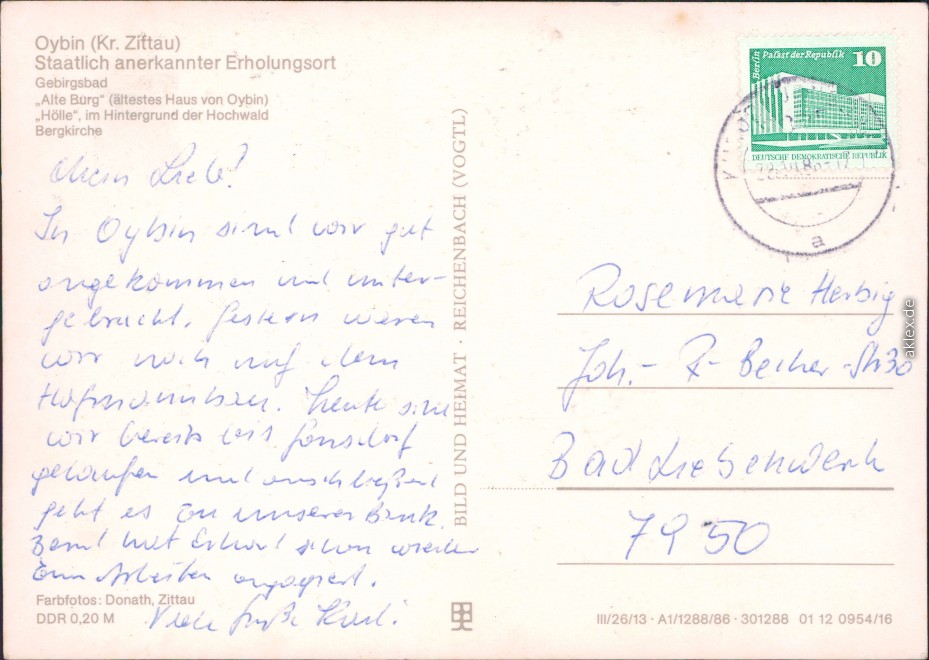 Oybin (Kr. Zittau)
Staatlich anerkannter Erholungsort
Gebirgsbad
„Alte Burg" (ältestes Haus von Oybin)
„Hölle", im Hintergrund der Hochwald
Bergkirche
Lieb!
In Oybin sind wir gut
angekommen und unter-
gebracht. Gestern waren
wir noch auf dem
Heute sind
wir bereits bis Jonsdorf
gelaufen und anschließend
geht es zu unserer Bank.
Bernd hat Erhard schon wieder
zum Arbeiten engagiert.
Viele Grüße
Farbfotos: Donath, Zittau
DDR 0,20 M
BILD UND HEIMAT · REICHENBACH (VOGTL)
Berlin Palast der Republik 10
DEUTSCHE DEMOKRATISCHE REPUBLIK
a
Rosemarie Herbig
Joh.-R-Becher-Str 30
Bad Liebenwerda
7950
III/26/13 · A1/1288/86 · 301288 01 12 0954/16
aklex.de